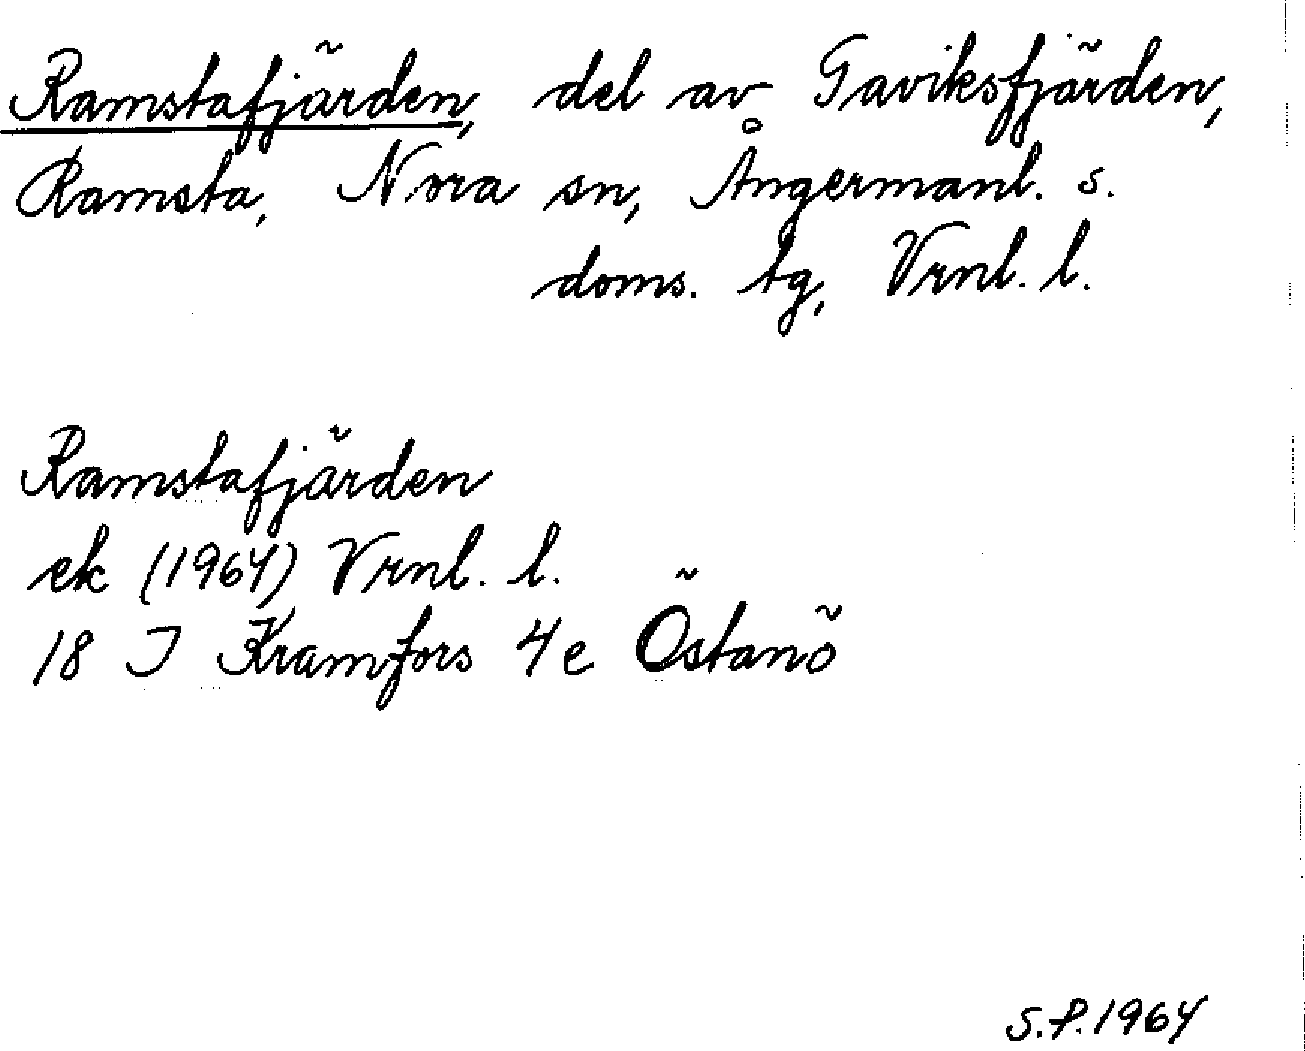 Ramstafjärden, del av Gaviksfjärden,
Ramsta, Nora sn, Ångermanl. s.
doms. tg, Vrnl. l.
Ramstafjärden
ek (1964) Vrnl. l.
18 J Kramfors 4e Östanö
S.P.1964